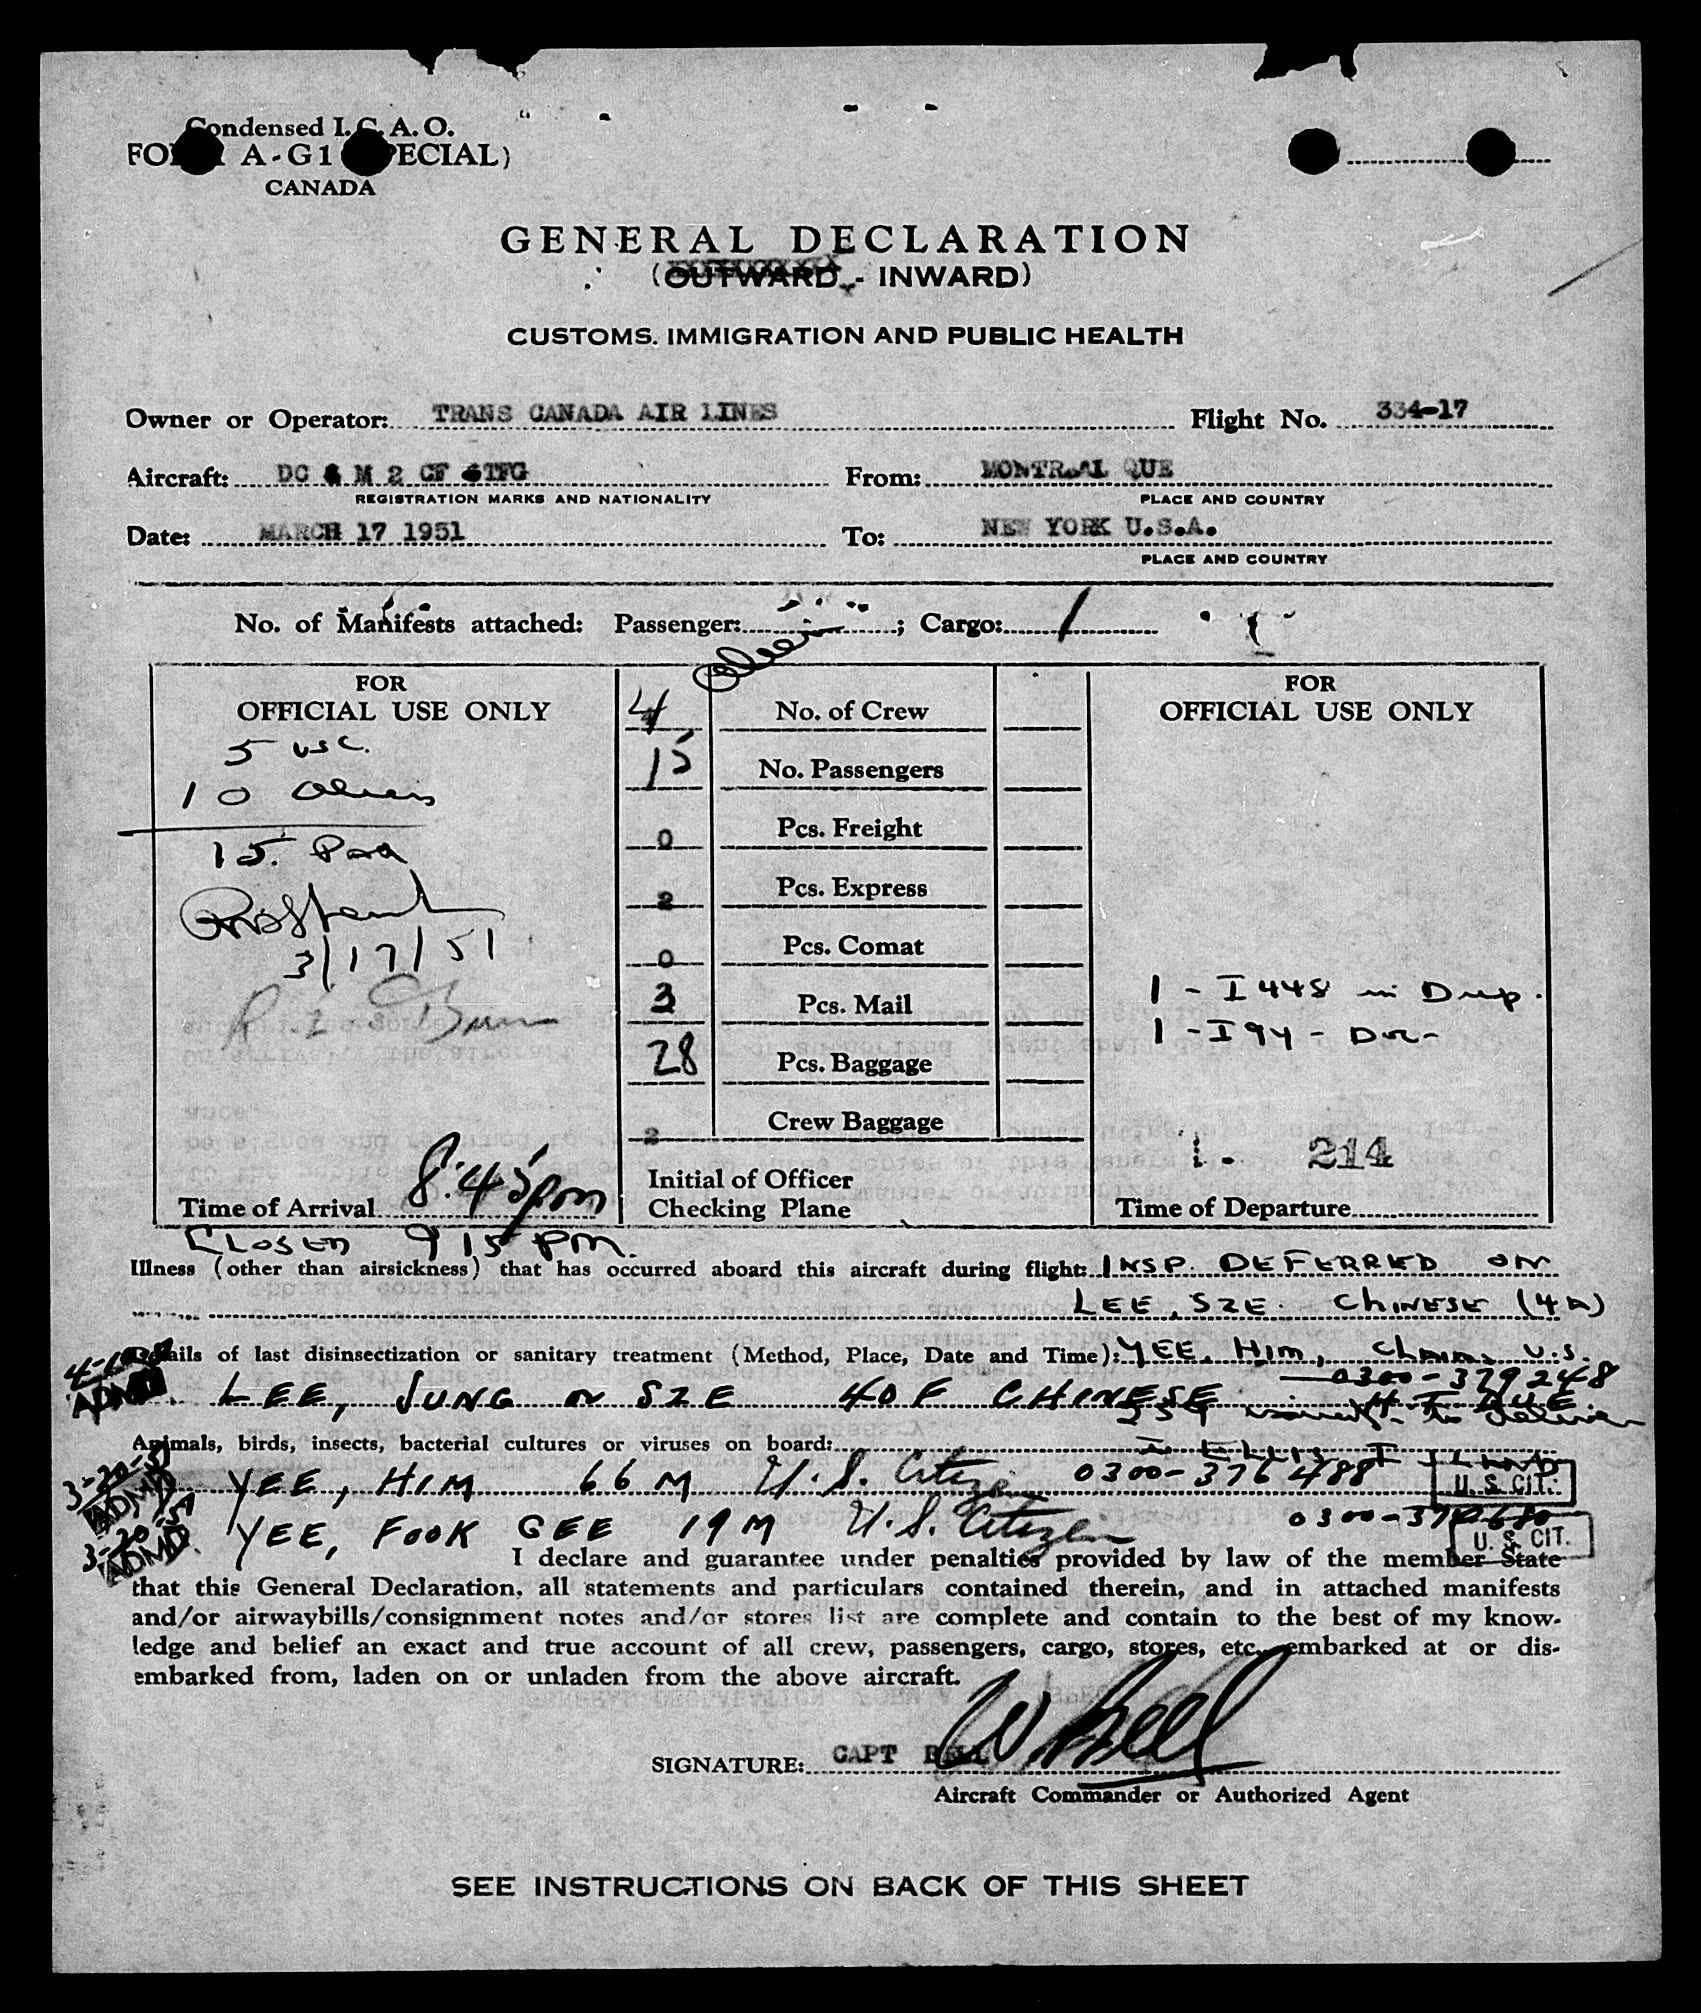 Condensed I.C.A.O.
FORM A-G1 (SPECIAL)
CANADA
GENERAL DECLARATION
(OUTWARD - INWARD)
CUSTOMS. IMMIGRATION AND PUBLIC HEALTH
Owner or Operator: TRANS CANADA AIR LINES Flight No. 334-17
Aircraft: DC 4 M 2 CF TFG From: MONTREAL QUE
REGISTRATION MARKS AND NATIONALITY PLACE AND COUNTRY
Date: MARCH 17 1951 To: NEW YORK U.S.A.
PLACE AND COUNTRY
No. of Manifests attached: Passenger: ; Cargo: 1
FOR OFFICIAL USE ONLY
5 USC.
10 Aliens
15. Pax
3/17/51
Time of Arrival 8:45 pm
4 No. of Crew
15 No. Passengers
0 Pcs. Freight
2 Pcs. Express
0 Pcs. Comat
3 Pcs. Mail
28 Pcs. Baggage
2 Crew Baggage
Initial of Officer
Checking Plane
FOR OFFICIAL USE ONLY
1 - I 448 in Dup.
1 - I 94 - Do -
1 - 214
Time of Departure
CLOSED 9 15 PM.
Illness (other than airsickness) that has occurred aboard this aircraft during flight: INSP. DEFERRED ON
LEE, SZE. CHINESE (4A)
Details of last disinsectization or sanitary treatment (Method, Place, Date and Time): YEE, HIM, CLAIMS U.S.
0300-379248
ADMD LEE, JUNG or SZE 40 F CHINESE
Animals, birds, insects, bacterial cultures or viruses on board:
3-20-51 ADMD YEE, HIM 66 M U.S. Citizen 0300-376488 U. S. CIT.
3-20-51 ADMD. YEE, FOOK GEE 19 M U.S. Citizen U. S. CIT.
I declare and guarantee under penalties provided by law of the member State
that this General Declaration, all statements and particulars contained therein, and in attached manifests
and/or airwaybills/consignment notes and/or stores list are complete and contain to the best of my know-
ledge and belief an exact and true account of all crew, passengers, cargo, stores, etc., embarked at or dis-
embarked from, laden on or unladen from the above aircraft.
SIGNATURE: CAPT BELL W Bell
Aircraft Commander or Authorized Agent
SEE INSTRUCTIONS ON BACK OF THIS SHEET